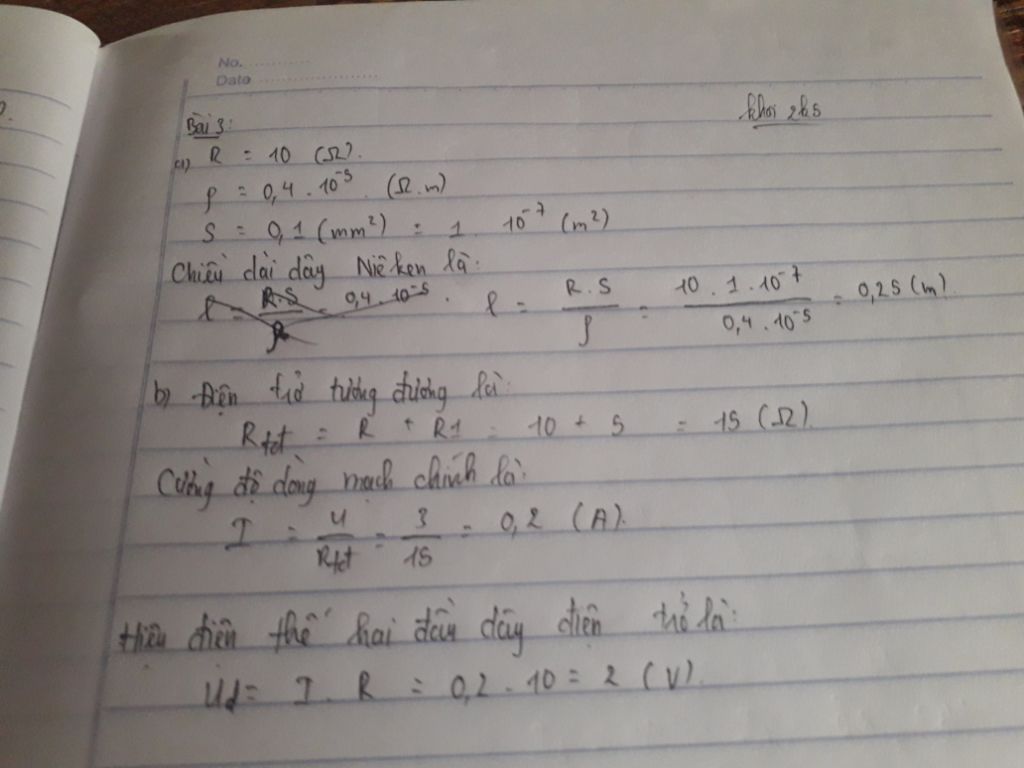 No. ............
Date ......................
khoi 2k5
Bài 3:
a) R = 10 (Ω).
ρ = 0,4 . 10⁻⁵ . (Ω.m)
S = 0,1 (mm²) = 1 . 10⁻⁷ (m²)
Chiều dài dây Niêken là:
l = R.S / ρ = 0,4 . 10⁻⁵ . l = R.S / ρ = 10 . 1 . 10⁻⁷ / 0,4 . 10⁻⁵ = 0,25 (m).
b) Điện trở tương đương là:
Rtđ = R + R1 = 10 + 5 = 15 (Ω).
Cường độ dòng mạch chính là:
I = U / Rtđ = 3 / 15 = 0,2 (A).
Hiệu điện thế hai đầu dây điện trở là:
Ud = I . R = 0,2 . 10 = 2 (V).